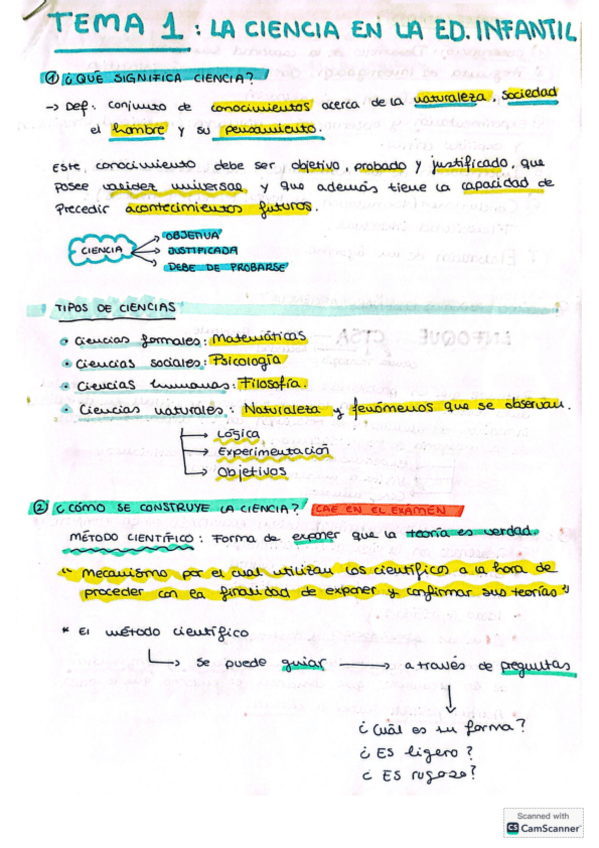 TEMA 1 : LA CIENCIA EN LA ED. INFANTIL
① ¿QUÉ SIGNIFICA CIENCIA?
→ Def: conjunto de conocimientos acerca de la naturaleza, sociedad
el hombre y su pensamiento.
Este, conocimiento debe ser objetivo, probado y justificado, que
posee validez universal y que además tiene la capacidad de
Precedir acontecimientos futuros.
CIENCIA
→ OBJETIVA
→ JUSTIFICADA
→ DEBE DE PROBARSE
TIPOS DE CIENCIAS
• Ciencias formales: Matemáticas
• Ciencias sociales: Psicología
• Ciencias humanas: Filosofía.
• Ciencias naturales: Naturaleza y fenómenos que se observan.
→ Lógica
→ Experimentación
→ Objetivos
② ¿CÓMO SE CONSTRUYE LA CIENCIA? CAE EN EL EXAMEN
MÉTODO CIENTÍFICO: Forma de exponer que la teoría es verdad.
"Mecanismo por el cual utilizan los científicos a la hora de
proceder con la finalidad de exponer y confirmar sus teorías"
* El método científico
→ se puede guiar → a través de preguntas
¿Cuál es su forma?
¿Es ligero?
¿Es rugoso?
Scanned with
CS CamScanner